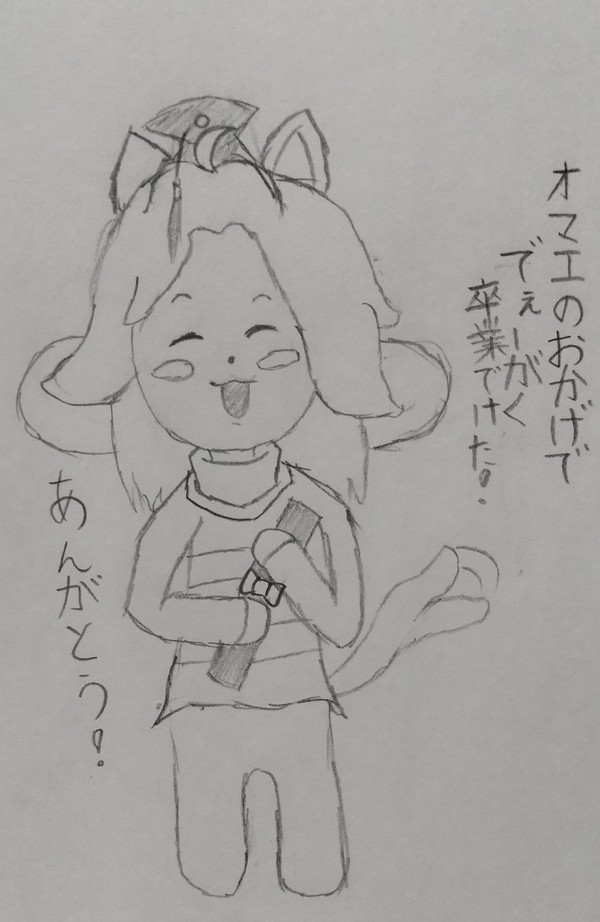 オマエのおかげで
でぇーがく
卒業でけた!
あんがとう!